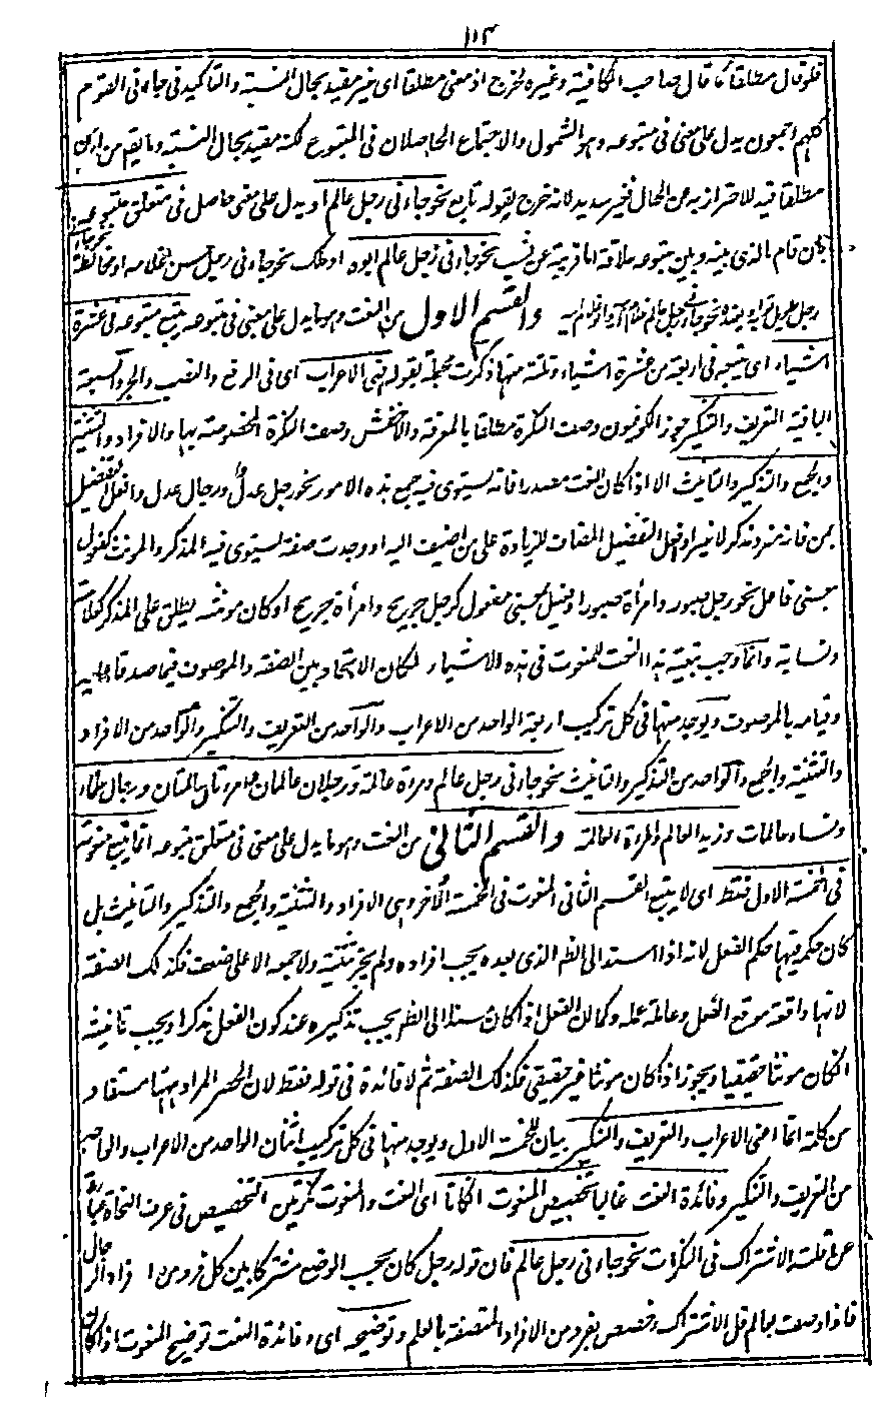 ۱۱۳
فلو قال مطلقا كما قال صاحب الكافية وغيره لخرج اذ معنى مطلقا اى غير مقيد بحال النسبة والتاكيد فى جاءنى القوم
كلهم اجمعون يدل على معنى فى متبوعه وهو الشمول والاجتماع الحاصلان فى المتبوع لكنه مقيد بحال النسبة وما يقع من ان
مطلقا قيد للاحتراز به عن الحال فغير سديد لانه خرج بقوله تابع نحو جاءنى رجل عالم او يدل على معنى حاصل فى متعلق متبوعه
بان قام بالذى بينه وبين متبوعه علاقة اما قريبة عن نسب نحو جاءنى رجل عالم ابوه او ملك نحو جاءنى رجل حسن غلامه او مخالطة نحو جاءنى
رجل طويل والقسم الاول من النعت وهو ما يدل على معنى فى متبوعه يتبع متبوعه فى عشرة
اشياء اى يتبعه فى اربعة من عشرة اشياء وثلثة منها ذكرت مجملة بقوله فى الاعراب اى فى الرفع والنصب والجر والسبعة
الباقية التعريف والتنكير جوز الكوفيون وصف النكرة مطلقا بالمعرفة والاخفش وصف النكرة المخصوصة بها والافراد والتثنية
والجمع والتذكير والتانيث الا اذا كان النعت مصدرا فانه يستوى فيه جميع هذه الامور نحو رجل عدل ورجال عدل وافعل التفضيل
بمن فانه مفرد مذكر لا غير او افعل التفضيل المضاف للزيادة على من اضيف اليه او وجدت صفة يستوى فيه المذكر والمونث كفعول
بمعنى فاعل نحو رجل صبور وامرأة صبور او فعيل بمعنى مفعول كرجل جريح وامرأة جريح او كان مونثه يطلق على المذكر كعلامة
ونسابة وانما وجب تبعية هذا النعت للمنعوت فى هذه الاشياء لمكان الاتحاد بين الصفة والموصوف فيما صدقا عليه
وقيامه بالموصوف ويوجد منها فى كل تركيب اربعة الواحد من الاعراب والواحد من التعريف والتنكير والواحد من الافراد
والتثنية والجمع والواحد من التذكير والتانيث نحو جاءنى رجل عالم وامراة عالمة ورجلان عالمان وامرءتان عالمتان ورجال علماء
ونساء عالمات وزيد العالم والمراة العالمة والقسم الثانى من النعت وهو ما يدل على معنى فى متعلق متبوعه انما يتبع متبوعه
فى الخمسة الاول فقط اى لا يتبع القسم الثانى المنعوت فى الخمسة الاخر وهى الافراد والتثنية والجمع والتذكير والتانيث بل
كان حكمه فيها حكم الفعل لانه اذا اسند الى الظ الذى بعده يجب افراده ولم يجز تثنيته ولا جمعه الا على ضعف فكذلك الصفة
لانها واقعة موقع الفعل وعاملة عمله وكما ان الفعل اذا كان مسندا الى الظ يجب تذكيره عند كون الفعل مذكرا ويجب تانيثه
اذا كان مونثا حقيقيا ويجوز اذا كان مونثا غير حقيقى فكذلك الصفة ثم لا فائدة فى قوله فقط لان الحصر المراد بهنا مستفاد
من كلمة انما اعنى الاعراب والتعريف والتنكير بيان للخمسة الاول ويوجد منها فى كل تركيب اثنان الواحد من الاعراب والواحد
من التعريف والتنكير وفائدة النعت غالبا تخصيص المنعوت ان كانا اى النعت والمنعوت نكرتين التخصيص فى عرف النحاة عبارة
عن قلة الاشتراك فى النكرات نحو جاءنى رجل عالم فان قوله رجل كان بحسب الوضع مشتركا بين كل فرد من افراد الرجال
فاذا وصفت بعالم قل الاشتراك وخصص بفرد من الافراد المتصفة بالعلم وتوضيحه اى وفائدة النعت توضيح المنعوت اذا كانا